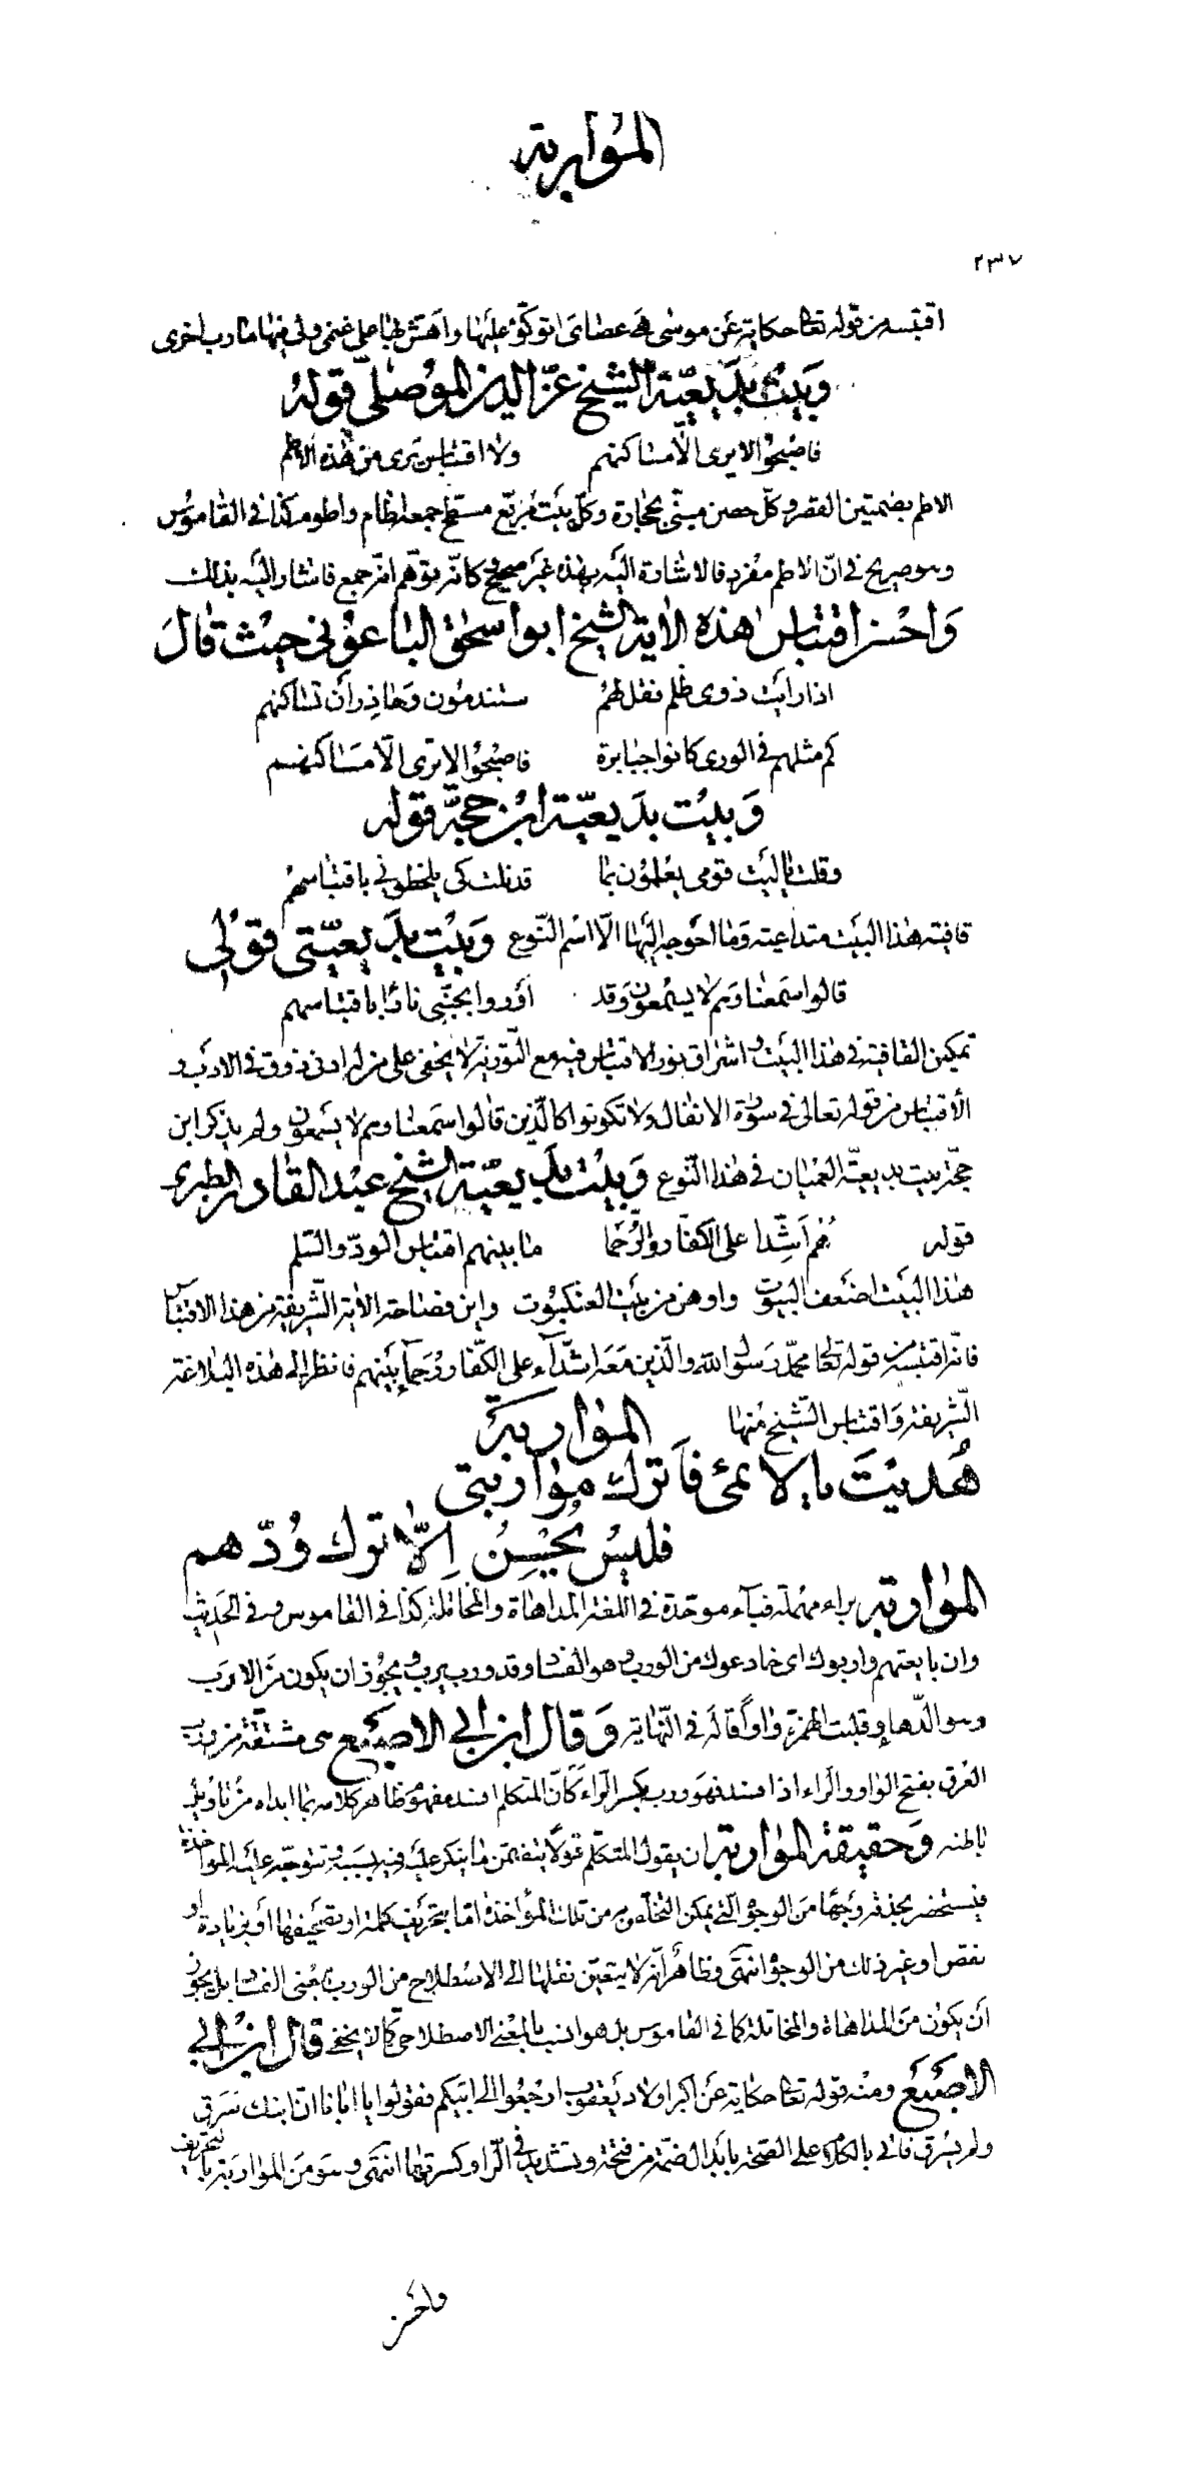 المواربة
٢٣٧
اقتبسه من قوله تعا حكاية عن موسى هى عصاى اتوكؤ عليها واهش بها على غنمى ولى فيها مارب اخرى
وبيت بديعيّة الشيخ عزّ الدين الموصلىّ قوله
فاصبحوا لا يرى الّا مساكنهم ولا اقتباس ترى من هذه الاطم
الاطم بضمتين القصر وكلّ حصن مبنىّ بحجارة وكلّ بيت مربّع مسطّح جمعه اطام واطوم كذا فى القاموس
وهو صريح فى انّ الاطم مفرد فالاشارة اليه بهذه غير صحيح كانّه توّهم انّه جمع فاشار اليه بذلك
واحسن اقتباس هذه الاية الشيخ ابو اسحق الباعونى حيث قال
اذا رايت ذوى ظلم فقل لهم ستندمون وحاذر أن تساكنهم
كم مثلهم فى الورى كانوا جبابرة فاصبحوا لا ترى الّا مساكنهم
وبيت بديعيّة ابن حجّة قوله
وقلت يا ليت قومى يعلمون بما قد نلت كى يلحظونى باقتباسهم
قافية هذا البيت متداعية وما احوجه اليها الّا اسم النّوع وبيت بديعيّتى قولى
قالوا سمعنا وهم لا يسمعون وقد أوروا بجنبى نارًا باقتباسهم
تمكين القافية فى هذا البيت واشراق نور الاقتباس فيه مع التّورية لا يخفى على من له ادنى ذوق فى الادب و
الاقتباس من قوله تعالى فى سورة الانفال ولا تكونوا كالّذين قالوا سمعنا وهم لا يسمعون ولم يذكر ابن
حجّة بيت بديعيّة العميان فى هذا النّوع وبيت بديعيّة الشيخ عبد القادر الطبرى
قوله هم اشدّا على الكفّار والرّحما ما بينهم اقتباس الودّ والسّلم
هذا البيت اضعف البيوت واوهن من بيت العنكبوت واين فصاحة الاية الشّريفة من هذا الاقتباس
فانّه اقتبسه من قوله تعا محمّد رسول الله والّذين معه اشدّاء على الكفّار رحماء بينهم فانظر الى هذه البلاغة
الشّريفة واقتباس الشّيخ منها المواربة
هديت يا لائمى فاترك مواربتى
فليس يحسن الّا ترك ودّهم
المواربة براء مهملة فباء موحّدة فى اللغة المداهاة والمخاتلة كذا فى القاموس وفى الحديث
وان بايعتهم واربوك اى خادعوك من الورب وهو الفساد وقد ورب يرب ويجوز ان يكون من الارب
وهو الدّهاء وقلبت الهمزة واوًا قاله فى النّهاية وقال ابن ابى الاصبع هى مشتقّة من ورب
العرق بفتح الواو والراء اذا فسد فهو ورب بكسر الرّاء كأنّ المتكلم افسد مفهوم ظاهر كلامه بما ابداه من تاويل
باطنه وحقيقة المواربة ان يقول المتكلّم قولًا يتضمّن ما ينكر عليه فيه بسببه وتتوجّه عليه المؤاخذة
فيستحضر بحذقه وجهًا من الوجوه الّتى يمكن التخلّص من تلك المؤاخذة امّا بتحريف كلمة او تصحيفها أو بزيادة او
نقص او غير ذلك من الوجوه انتهى وظاهر أنّه لا يتعيّن نقلها الى الاصطلاح من الورب بمعنى الفساد بل يجوز
أن يكون من المداهاة والمخاتلة كما فى القاموس بل هو انسب بالمعنى الاصطلاحى كما لا يخفى قال ابن ابى
الاصبع ومنه قوله تعا حكاية عن اكبر اولاد يعقوب ارجعوا الى ابيكم فقولوا يا ابانا انّ ابنك سرق
ولم يسرق فاتى بالكلام على الصّحة بابدال ضمّة من فتحة وتشديد فى الرّاء وكسرتها انتهى وهو من المواربة بالتحريف
واحسن